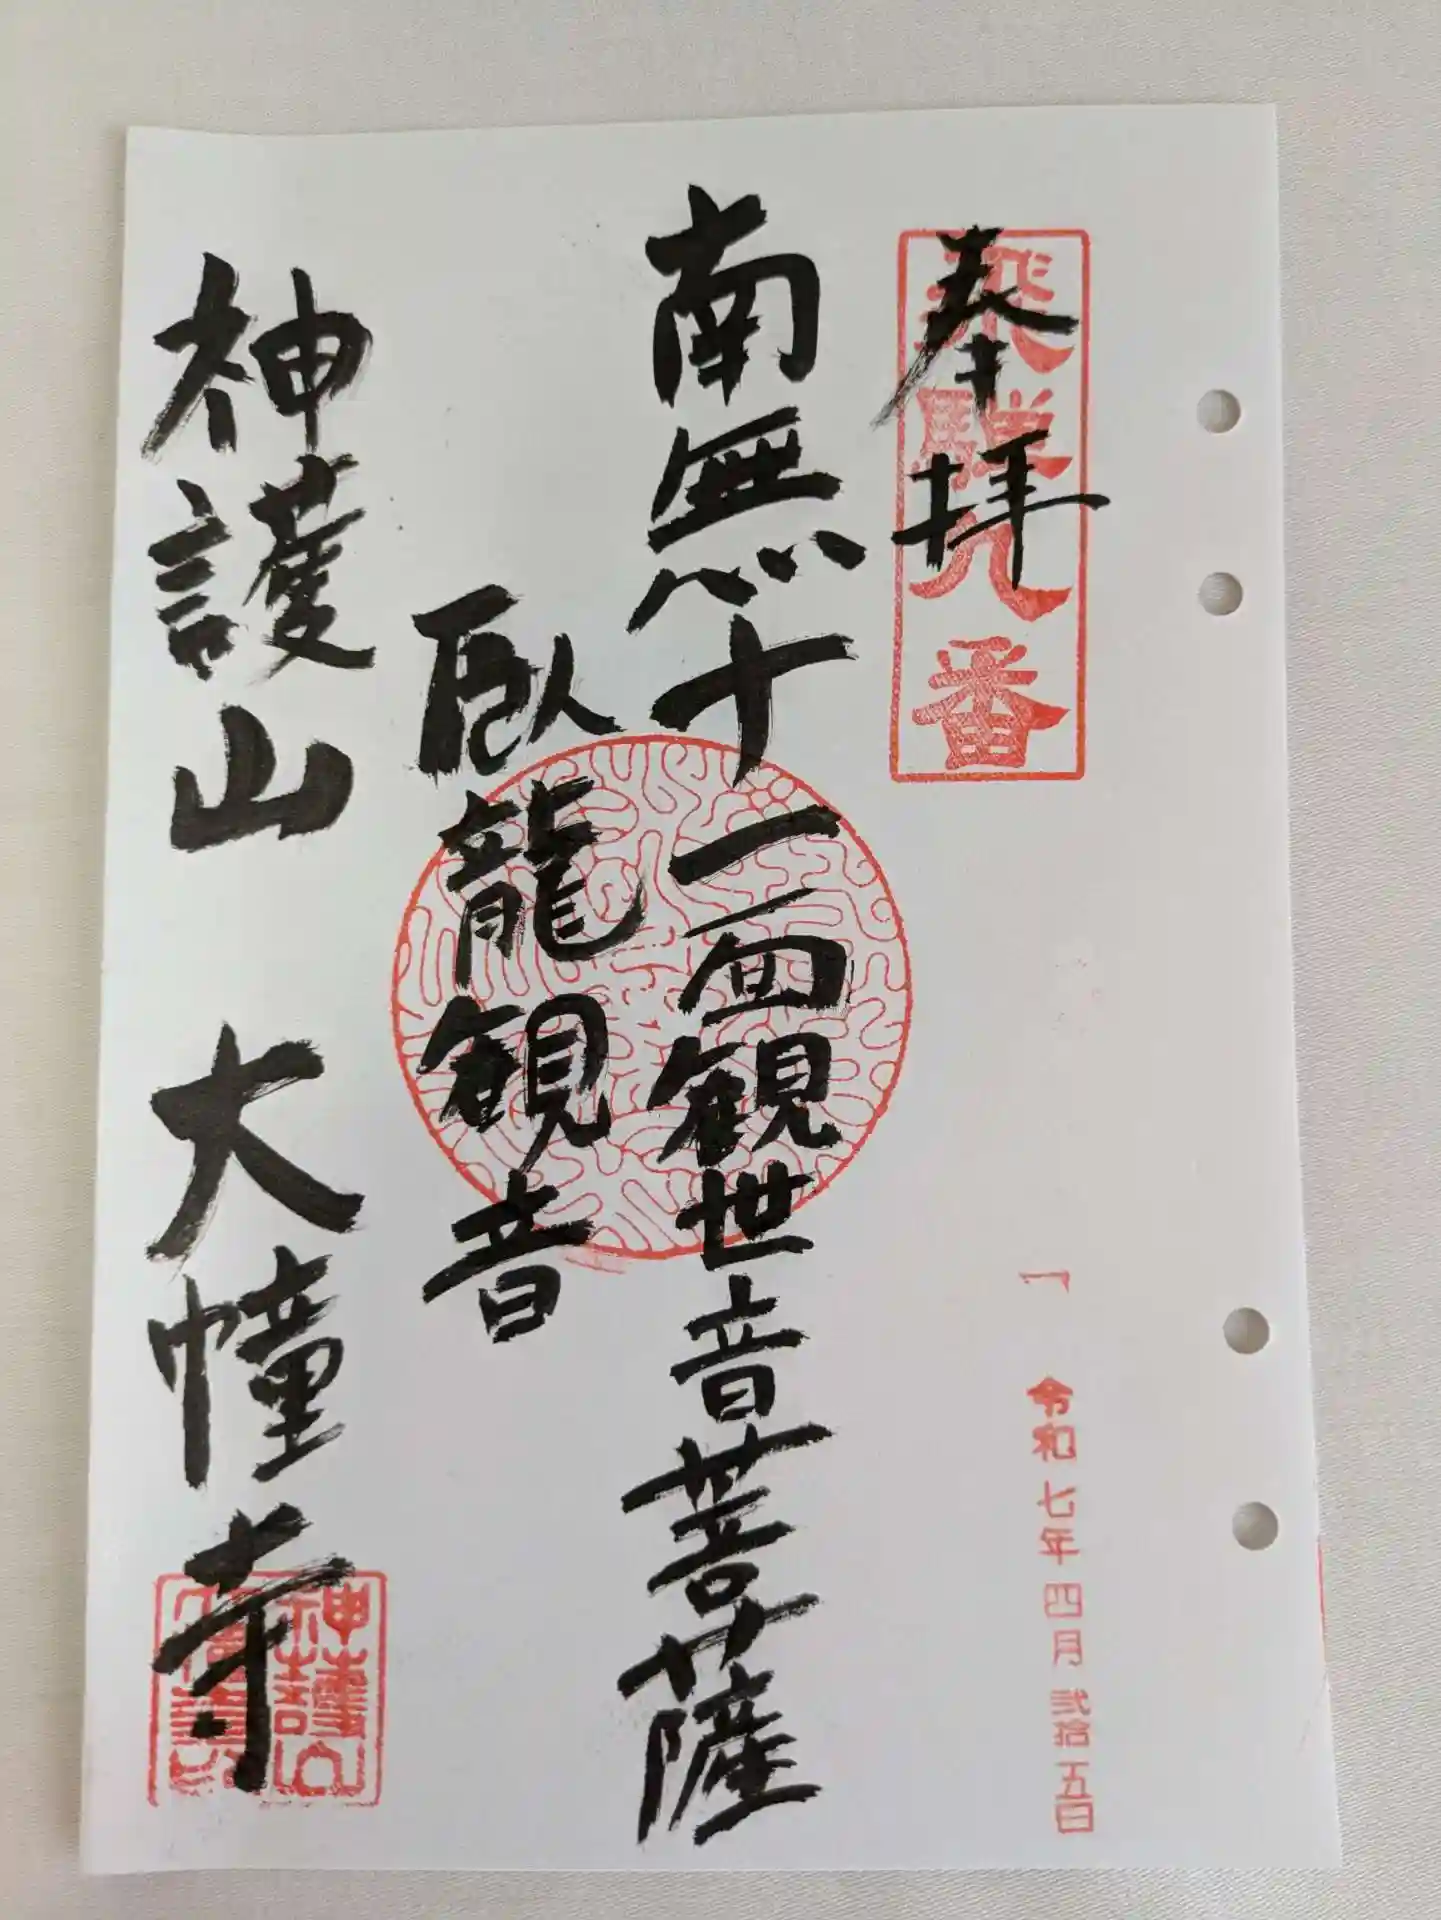 奉拝
飛騨九番
令和七年四月弐拾五日
南無十一面観世音菩薩
臥龍観音
神護山 大幢寺
神護山